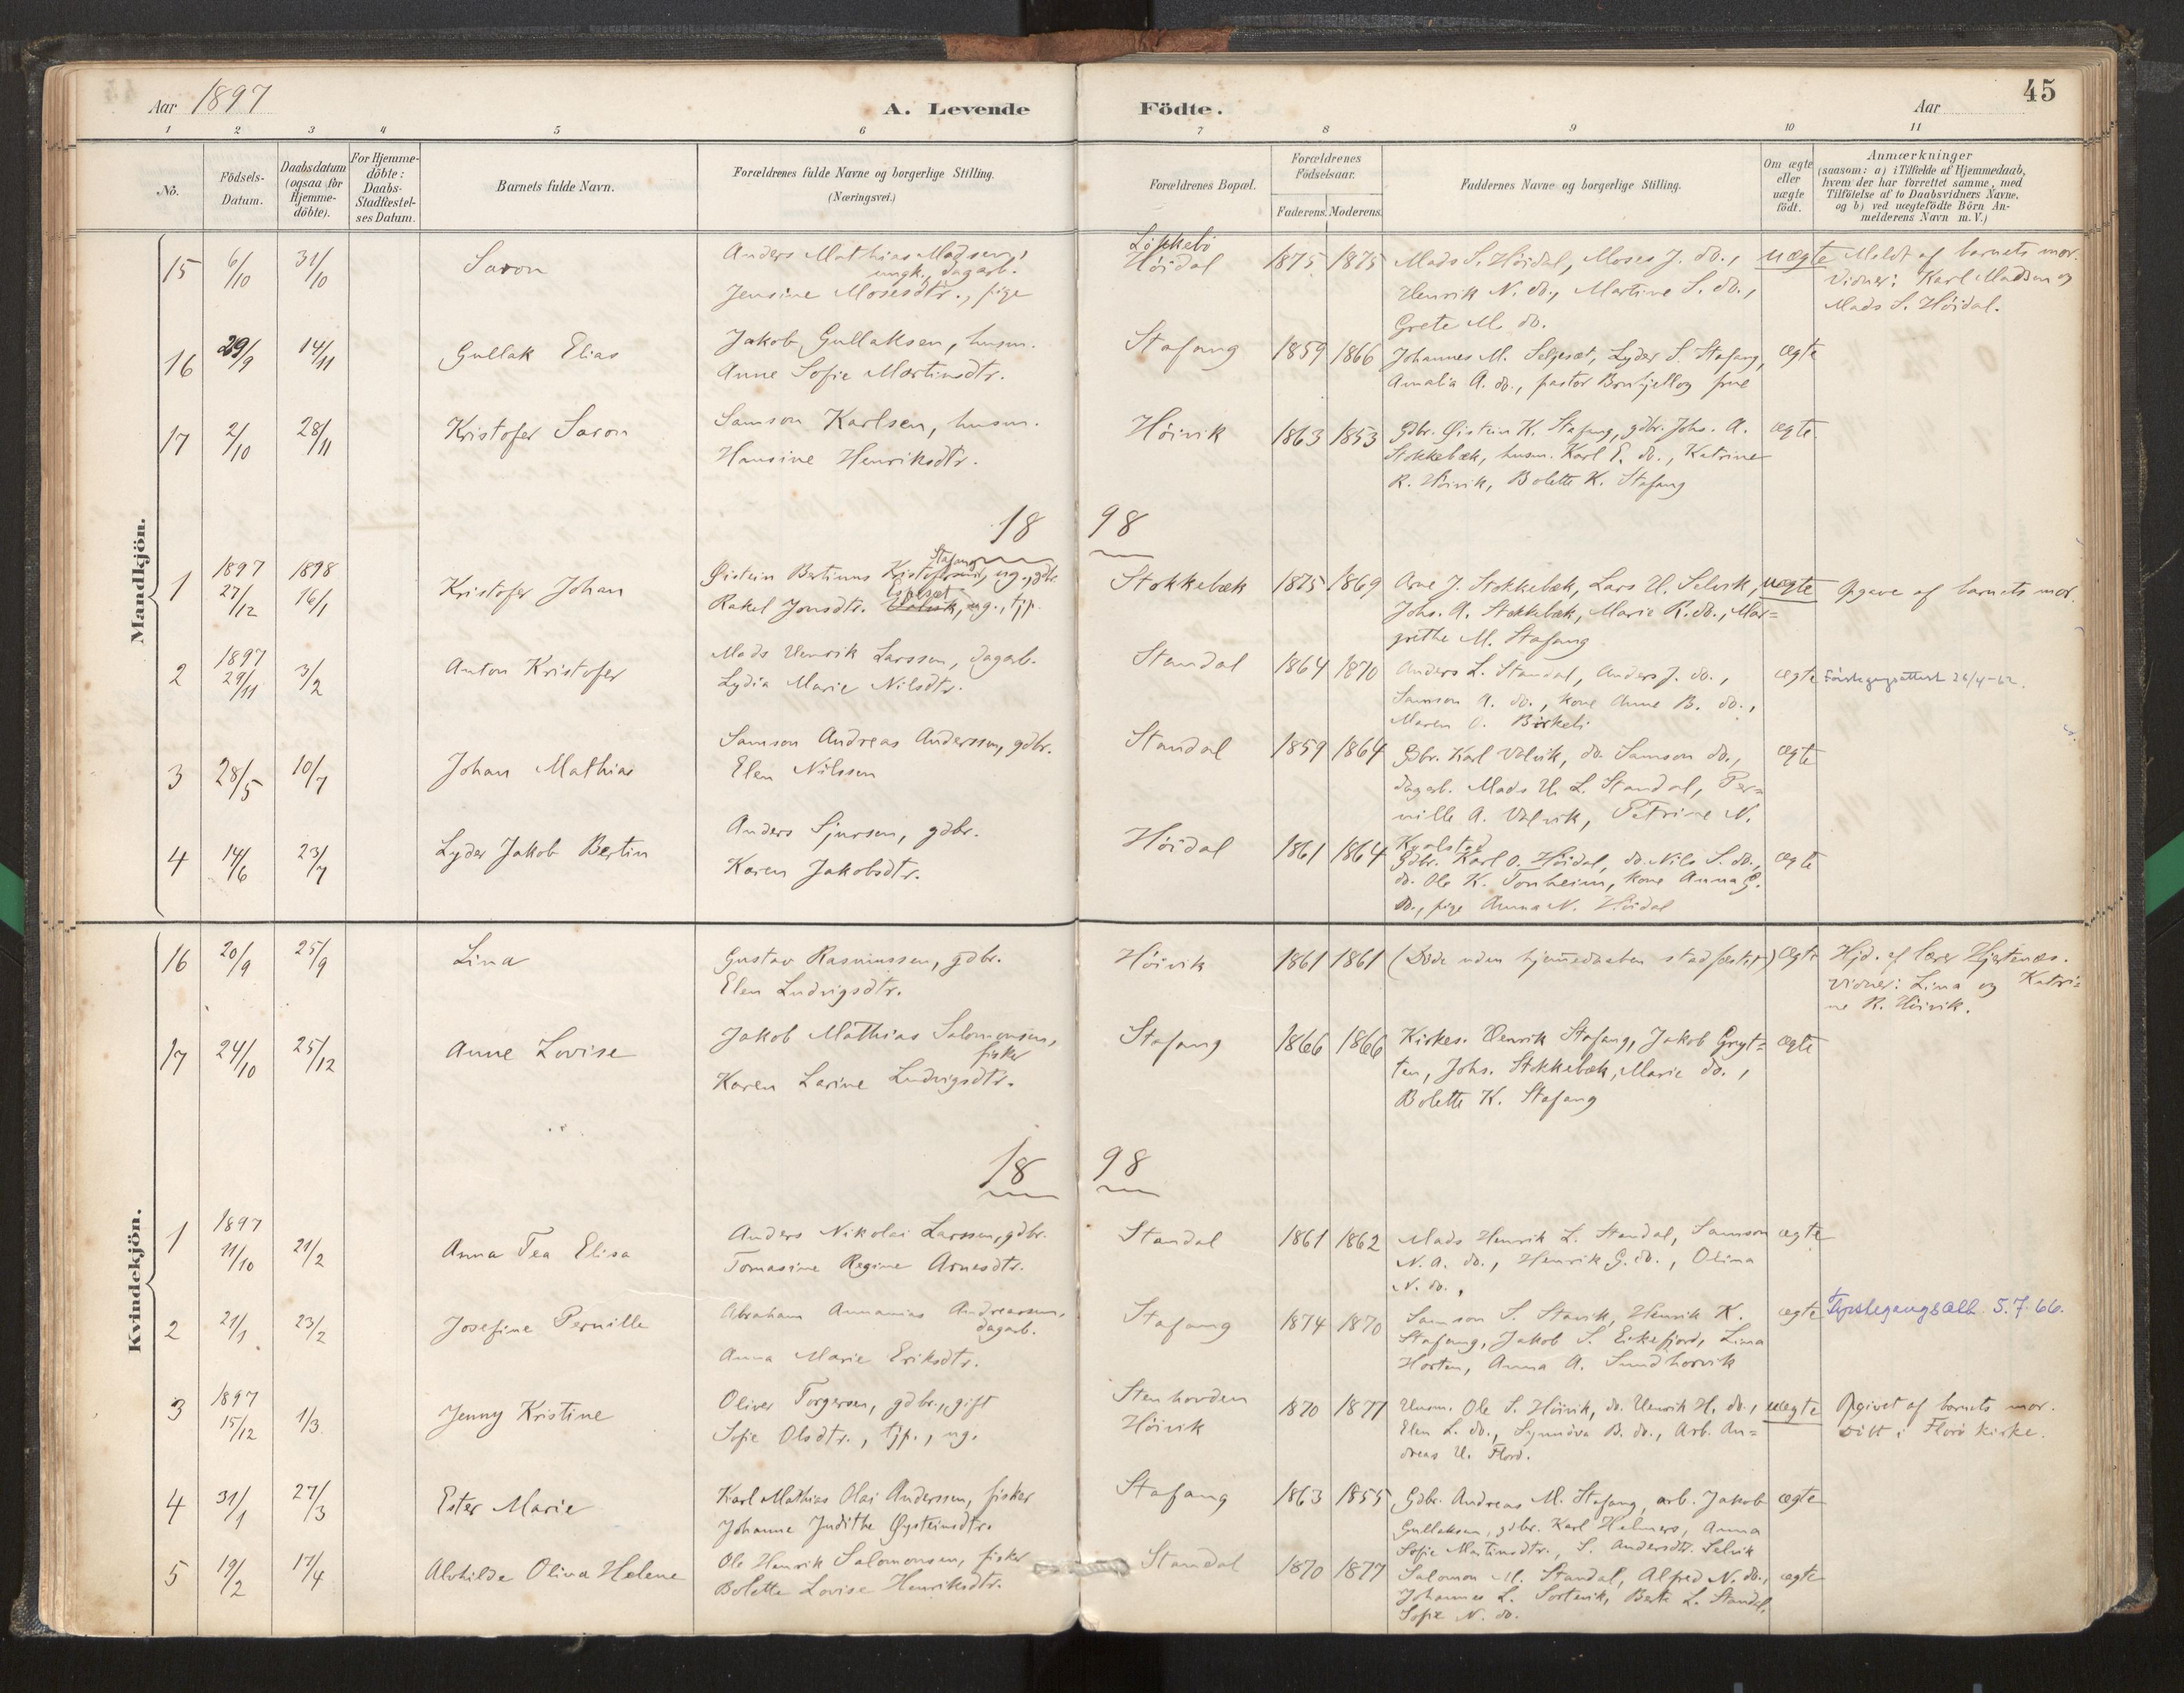 Aar 1897
A. Levende Födte.
Aar
45
1 2 3 4 5 6 7 8 9 10 11
No.
Födsels-Datum.
Daabsdatum (ogsaa for Hjemme-döbte).
For Hjemme-döbte: Daabs-Stadfæstel-ses Datum.
Barnets fulde Navn.
Forældrenes fulde Navne og borgerlige Stilling.
(Næringsvei.)
Forældrenes Bopæl.
Forældrenes Födselsaar.
Faderens. Moderens.
Faddernes Navne og borgerlige Stilling.
Om ægte eller uægte födt.
Anmærkninger
(saasom: a) i Tilfælde af Hjemmedaab,
hvem der har forrettet samme, med
Tilföielse af to Daabsvidners Navne,
og b) ved uægtefödte Börn An-
melderens Navn m. V.)
Mandkjön.
15 6/10 31/10 Saron
Anders Mathias Madsen,
ungk., dagarb.
Jensine Mosesdtr., pige
Løkkebø
Höidal 1875 1875
Mads S. Höidal, Moses J. do.,
Henrik N. do., Martine S. do.,
Grete M. do.
uægte
Meldt af barnets mor.
Vidner: Karl Madsen og
Mads S. Höidal.
16 29/9 14/11 Gullak Elias
Jakob Gullaksen, husm.
Anne Sofie Martinsdtr.
Stafang 1859 1866
Johannes M. Seljeset, Lyder S. Stafang,
Amalia A. do., pastor Bonhjell og frue
ægte
17 2/10 28/11 Kristofer Saron
Samson Karlsen, husm.
Hansine Henriksdtr.
Höivik 1863 1853
Gdbr. Øistein K. Stafang, gdbr. Johs. A.
Stokkebæk, husm. Karl E. do., Katrine
R. Höivik, Bolette K. Stafang
ægte.
18 98
1 1897 27/12 1898 16/1 Kristofer Johan
Stafang
Øistein Bertinus Kristofersen, ug., gdbr.
Rakel Jonsdtr. ug., tjp.
Stokkebæk 1875 1869
Arne J. Stokkebæk, Lars H. Selvik,
Johs. A. Stokkebæk, Marie R. do., Mar=
grethe M. Stafang
uægte
Opgave af barnets mor.
2 1897 29/11 3/2 Anton Kristofer
Mads Henrik Larssen, dagarb.
Lydia Marie Nilsdtr.
Standal 1864 1870
Anders L. Standal, Anders J. do.,
Samson A. do., kone Anne B. do.,
Maren O. Birkeli
ægte
Förstegangsattest 26/4-62.
3 28/5 10/7 Johan Mathias
Samson Andreas Anderssen, gdbr.
Elen Nilssen
Standal 1859 1864
Gdbr. Karl Valvik, do. Samson do.,
dagarb. Mads H. L. Standal, Per=
nille A. Valvik, Petrine N.
ægte
4 14/6 23/7 Lyder Jakob Bertin
Anders Sjursen, gdbr.
Karen Jakobsdtr.
Höidal 1861 1864
Kvalstad
Gdbr. Karl O. Höidal, do. Nils S. do.,
do. Ole K. Tonheim, kone Anna G.
do., pige Anna N. Höidal
ægte
Kvindekjön.
16 20/9 25/9 Lina
Gustav Rasmussen, gdbr.
Elen Ludvigsdtr.
Höivik 1861 1861
(Døde uden hjemmedaaben stadfæstet)
ægte
Hjd. af lærer Hjertenæs.
Vidner: Lina og Katri=
ne R. Höivik.
17 24/10 25/12 Anne Lovise
Jakob Mathias Salomonsen,
fisker
Karen Larine Ludvigsdtr.
Stafang 1866 1866
Kirkes. Henrik Stafang, Jakob Gryt=
ten, Johs. Stokkebæk, Marie do.,
Bolette K. Stafang
ægte
18 98
1 1897 11/10 21/2 Anna Tea Elisa
Anders Nikolai Larssen, gdbr.
Tomasine Regine Arnesdtr.
Standal 1861 1862
Mads Henrik L. Standal, Samson
N. A. do., Henrik G. do., Olina
N. do.,
ægte
2 21/1 23/2 Josefine Pernille
Abraham Annanias Andreassen,
dagarb.
Anna Marie Eriksdtr.
Stafang 1874 1870
Samson S. Stavik, Henrik K.
Stafang, Jakob S. Eikefjord, Lina
Horten, Anna A. Sundhorvik
ægte
Förstegangsatt. 5.7.66.
3 1897 15/12 1/3 Jenny Kristine
Oliver Torgersen, gdbr., gift
Sofie Olsdtr., tjp., ug.
Stenhovden
Höivik 1870 1877
Husm. Ole S. Höivik, do. Henrik H. do.,
Elen L. do., Synnöva B. do., Arb. An=
dreas H. Florö.
uægte
Opgivet af barnets mor.
Döbt i Florö kirke.
4 31/1 27/3 Ester Marie
Karl Mathias Olai Anderssen, fisker
Johanne Judithe Øysteinsdtr.
Stafang 1863 1855
Gdbr. Andreas M. Stafang, arb. Jakob
Gullaksen, gdbr. Karl Helmers, Anna
Sofie Martinsdtr., S. Andersdtr. Selvik
ægte
5 19/2 17/4 Alvhilde Oliva Helene
Ole Henrik Salomonsen, fisker
Bolette Lovise Henriksdtr.
Standal 1870 1877
Salomon M. Standal, Alfred N. do.,
Johannes L. Sortevik, Berte L. Standal,
Sofie N. do.
ægte